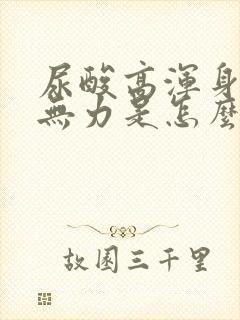 尿酸高渾身
無力是怎麼
故園三千里